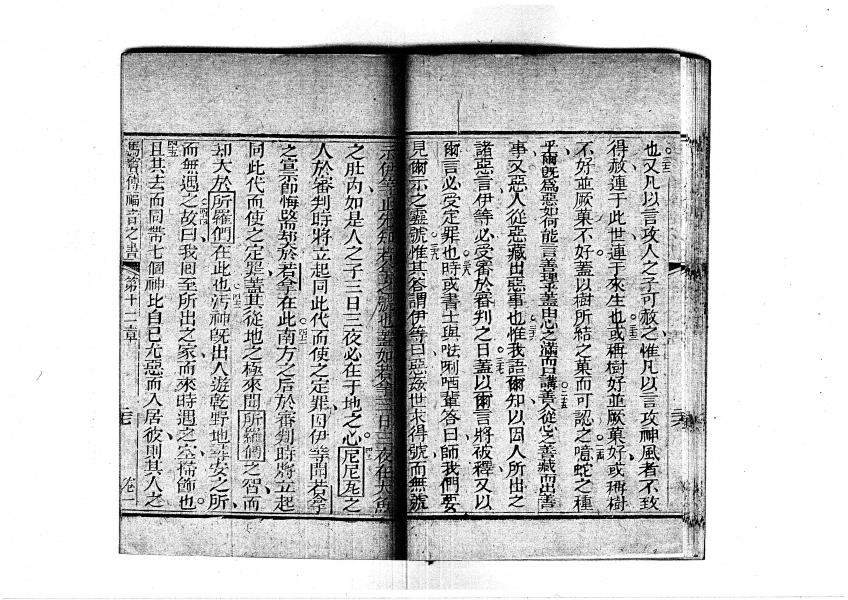 也又凡以言攻人之子可赦之惟凡以言攻神風者不致
得赦連于此世連于來生也或稱樹好並厥菓好或稱樹
不好並厥菓不好蓋以樹所結之菓而可認之噫蛇之種
乎爾旣為惡如何能言善理乎蓋由心之滿而口講善人從心之善藏而出善
事又惡人從惡藏出惡事也惟我語爾知以因人所出之
諸惡言伊等必受審於審判之日蓋以爾言將被釋又以
爾言必受定罪也時或書士與𠵽唎哂輩答曰師我們要
見爾示之靈號惟其答謂伊等曰惡姦世求得號而無號
示伊等止先知若拿之號也蓋如若拿三日三夜在大魚
之肚內如是人之子三日三夜必在于地之心尼尼瓦之
人於審判時將立起同此代而使之定罪因伊等聞若拿
之宣示卽悔罪却大於若拿在此南方之后於審判時將立起
同此代而使之定罪蓋其從地之極來聞所羅們之智而
却大於所羅們在此也污神旣出人遊乾野地尋安之所
而無遇之故曰我回至所出之家而來時遇之空掃飾也
且其去而同帶七個神比自己尤惡而入居彼則其人之
馬竇傳福音之書 第十二章 卷一